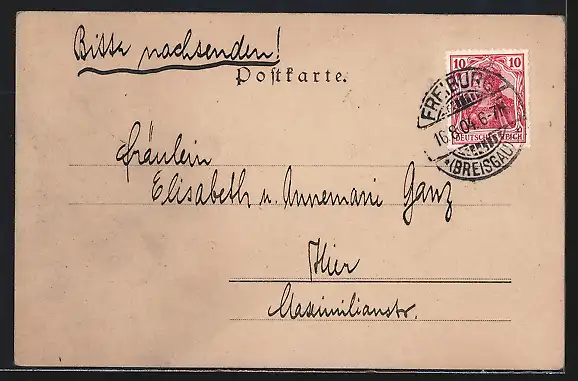 Bitte nachsenden!
Postkarte.
10 10
DEUTSCHES REICH
FREIBURG
16.8.04.6-7N
*(BREISGAU)
Fräulein
Elisabeth u. Annemarie Ganz
Hier
Maximilianstr.